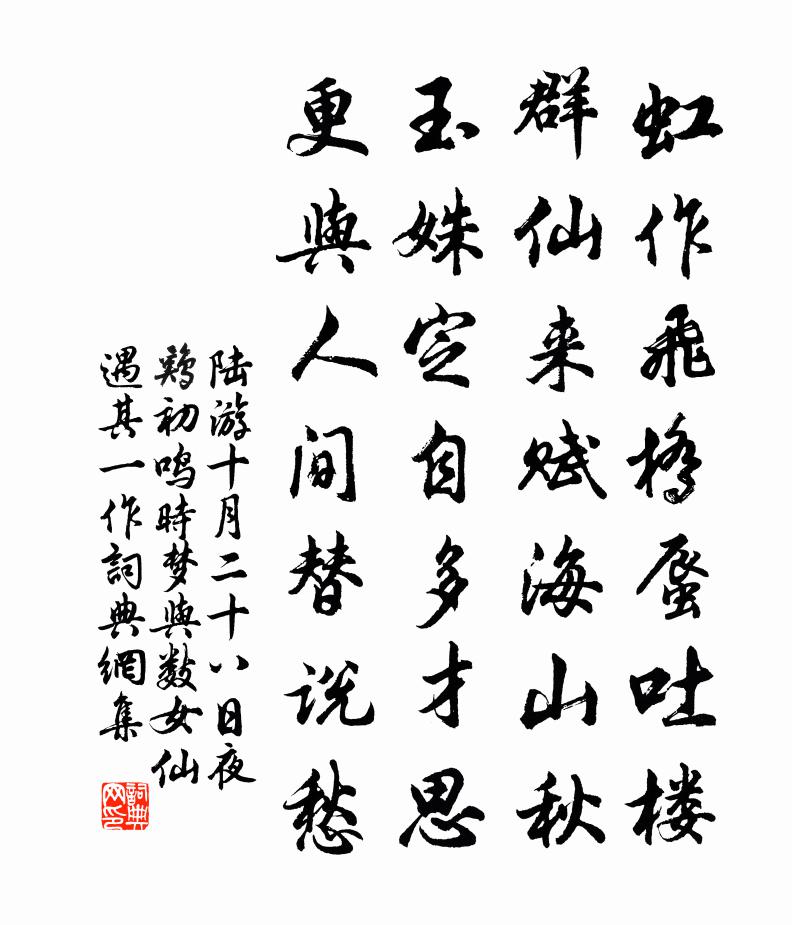 虹作飛橋蜃吐楼
群仙来赋海山秋
玉姝定自多才思
更與人间替说愁
陆游十月二十八日夜
鶏初鸣時梦與数女仙
遇其一作詞典網集
詞典网印